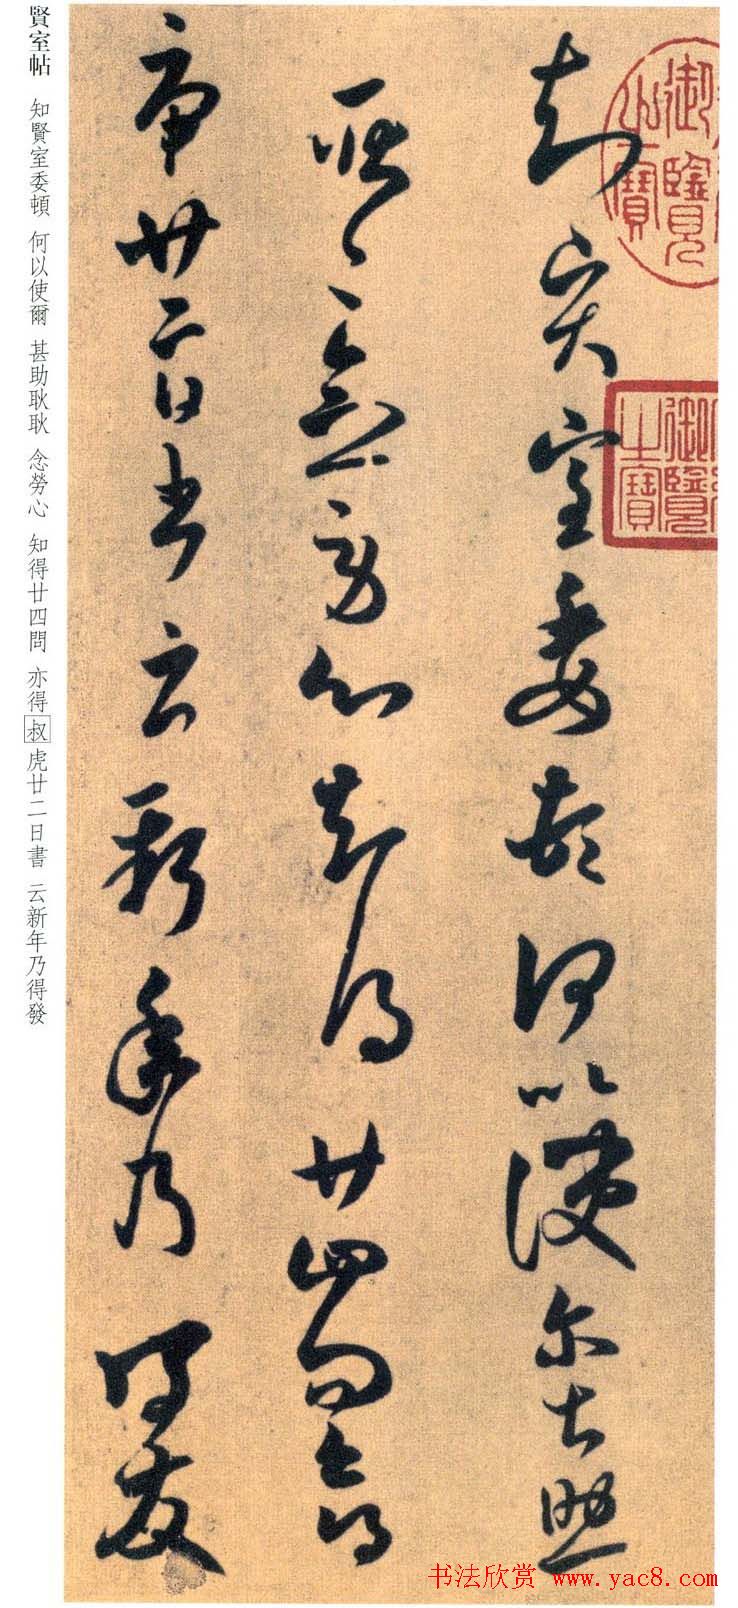 知賢室委頓何以使爾甚助
耿耿念勞心知得廿四問亦得
虎廿二日書云新年乃得發
御覽之寶
御覽之寶
賢室帖
知賢室委頓 何以使爾 甚助耿耿 念勞心 知得廿四問 亦得叔虎廿二日書 云新年乃得發
书法欣赏 www.yac8.com